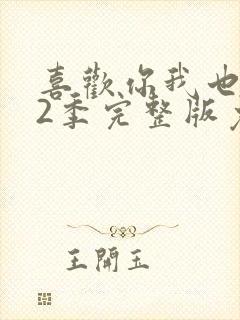 喜歡你我也
2季完整版免
王開玉